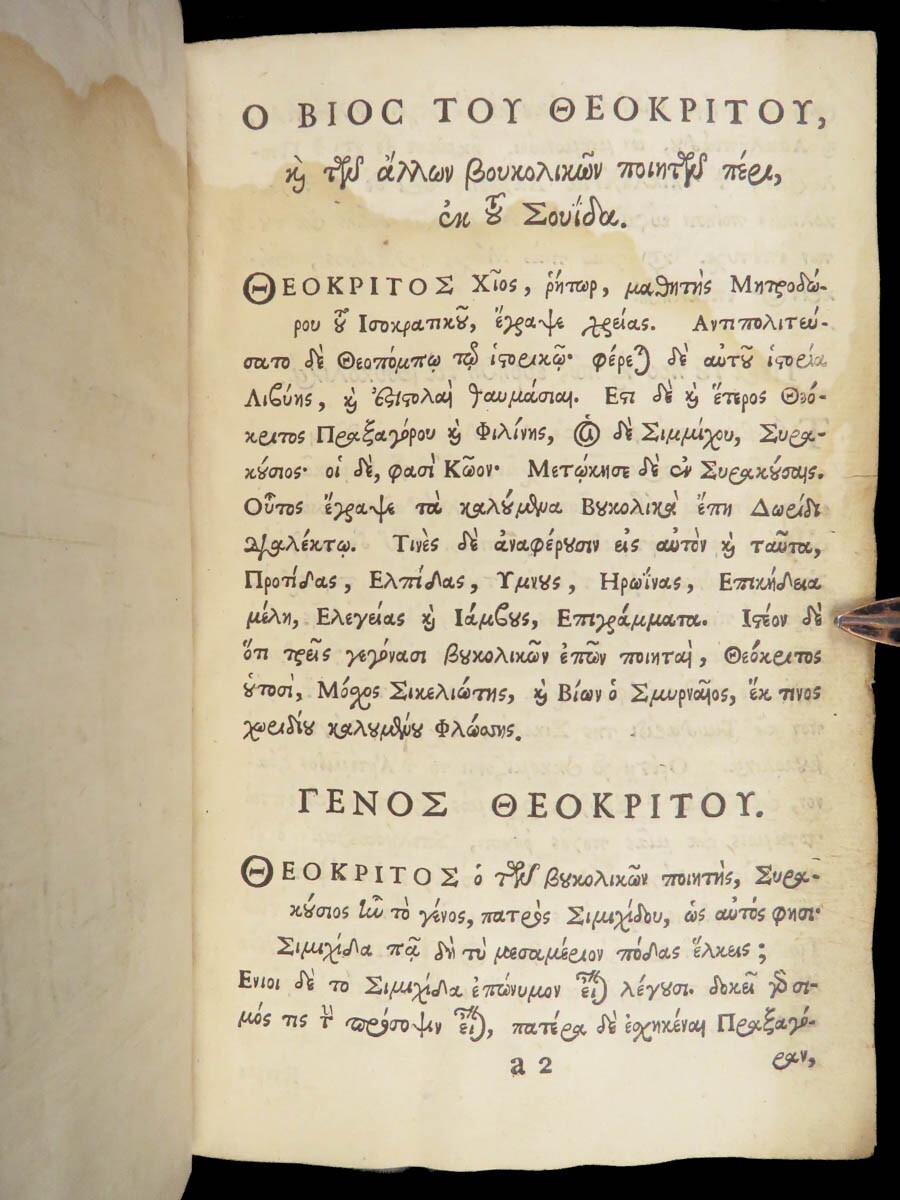 Ο ΒΙΟC ΤΟΥ ΘΕΟΚΡΙΤΟΥ,
ϗ̀ τῶν ἄλλων βουκολικῶν ποιητῶν πέρι,
ἐκ τοῦ Σουΐδα.
ΘΕΟΚΡΙΤΟΣ Χῖος, ῥήτωρ, μαθητὴς Μητροδώ-
ρου τοῦ Ισοκρατικοῦ, ἔγραψε χρείας. Αντιπολιτεύ-
σατο δὲ Θεοπόμπῳ τῷ ἱστορικῷ· φέρεται δὲ αὐτοῦ ἱστορία
Λιβύης, ϗ̀ ἐπιστολαὶ θαυμάσιαι. Εστι δὲ ϗ̀ ἕτερος Θεό-
κριτος Πραξαγόρου ϗ̀ Φιλίνης, οἱ δὲ Σιμμίχου, Συρα-
κούσιος· οἱ δέ, φασὶ Κῶον· Μετῴκησε δὲ ἐν Συρακούσαις.
Οὗτος ἔγραψε τὰ καλούμενα Βουκολικὰ ἔπη Δωρίδι
διαλέκτῳ. Τινὲς δὲ ἀναφέρουσιν εἰς αὐτὸν ϗ̀ ταῦτα,
Προτίδας, Ελπίδας, Υμνους, Ηρωΐνας, Επικήδεια
μέλη, Ελεγείας ϗ̀ Ιάμβους, Επιγράμματα. Ιστέον δὲ
ὅτι τρεῖς γεγόνασι βουκολικῶν ἐπῶν ποιηταὶ, Θεόκριτος
οὑτοσὶ, Μόσχος Σικελιώτης, ϗ̀ Βίων ὁ Σμυρναῖος, ἔκ τινος
χωριδίου καλουμένου Φλώσσης.
ΓΕΝΟΣ ΘΕΟΚΡΙΤΟΥ.
ΘΕΟΚΡΙΤΟΣ ὁ τῶν βουκολικῶν ποιητὴς, Συρα-
κούσιος ἦν τὸ γένος, πατρὸς Σιμιχίδου, ὡς αὐτός φησι·
Σιμιχίδα πᾷ δὴ τὺ μεσαμέριον πόδας ἕλκεις;
Ενιοι δὲ τὸ Σιμιχίδα ἐπώνυμον εἶναι λέγουσι. δοκεῖ γὰρ σι-
μός τις τὴν πρόσοψιν εἶναι, πατέρα δὲ ἐσχηκέναι Πραξαγό-
a 2
ραν,